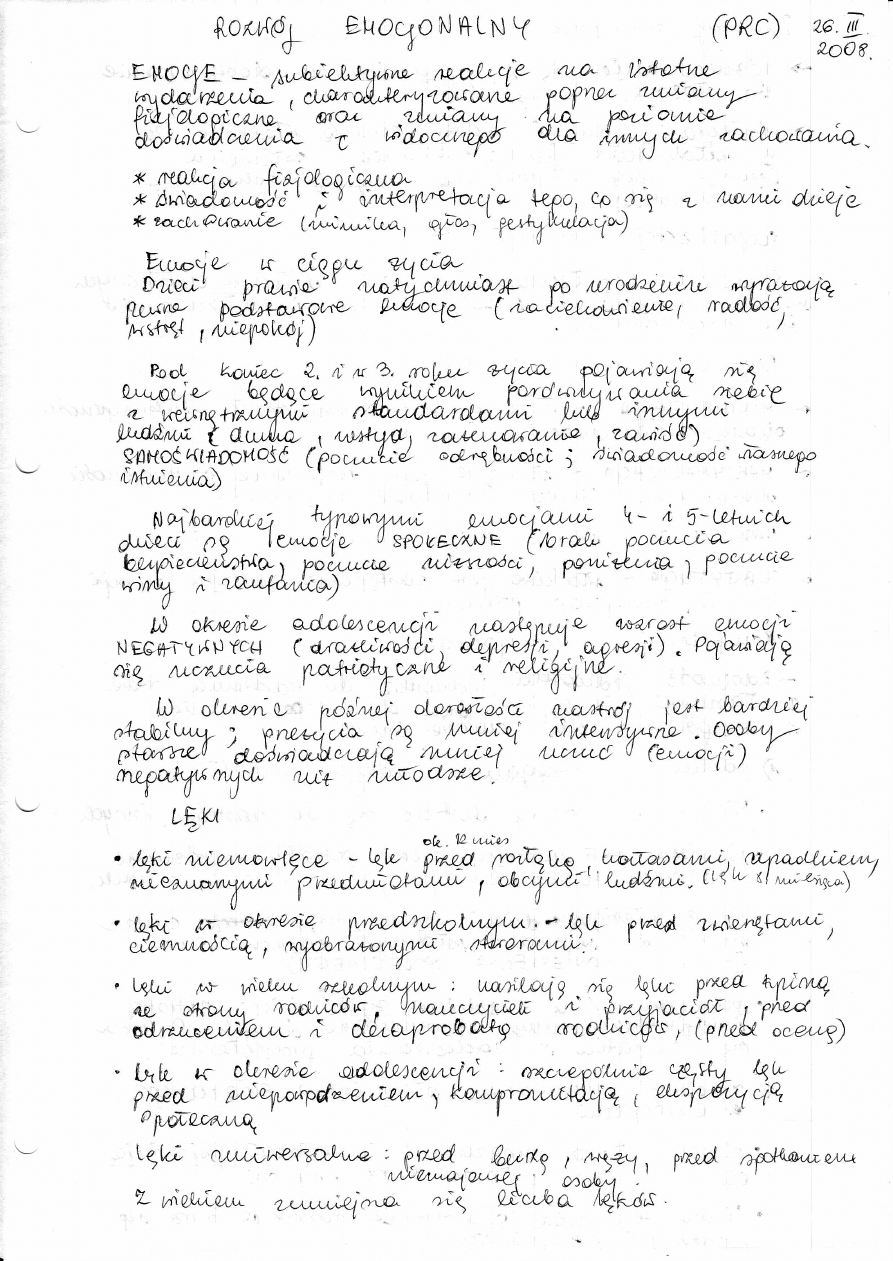 ROZWÓJ EMOCJONALNY (PRC) 26. III 2008.
EMOCJE – subiektywne reakcje na istotne
wydarzenia, charakteryzowane poprzez zmiany
fizjologiczne oraz zmiany na poziomie
doświadczenia i widocznego dla innych zachowania.
* reakcja fizjologiczna
* świadomość i interpretacja tego, co się z nami dzieje
* zachowanie (mimika, głos, gestykulacja)
Emocje w ciągu życia
Dzieci prawie natychmiast po urodzeniu wyrażają
pewne podstawowe emocje (zaciekawienie, radość,
wstręt, niepokój)
Pod koniec 2. i w 3. roku życia pojawiają się
emocje będące wynikiem porównywania siebie
z wewnętrznymi standardami lub innymi
ludźmi (duma, wstyd, zażenowanie, zawiść)
SAMOŚWIADOMOŚĆ (poczucie odrębności; świadomość własnego
istnienia)
Najbardziej typowymi emocjami 4- i 5-letnich
dzieci są emocje SPOŁECZNE (brak poczucia
bezpieczeństwa, poczucie niższości, poniżenia, poczucie
winy i zaufania)
W okresie adolescencji następuje wzrost emocji
NEGATYWNYCH (drażliwości, depresji, agresji). Pojawiają
się uczucia patriotyczne i religijne.
W okresie późnej dorosłości nastrój jest bardziej
stabilny; przeżycia są mniej intensywne. Osoby
starsze doświadczają mniej uczuć (emocji)
negatywnych niż młodsze.
LĘKI
ok. 12 mies
• lęki niemowlęce – lęk przed rozłąką, hałasami, upadkiem,
nieznanymi przedmiotami, obcymi ludźmi. (lęk 8 miesiąca)
• lęki w okresie przedszkolnym – lęk przed zwierzętami,
ciemnością, wyobrażonymi stworami.
• lęki w wieku szkolnym: nasilają się lęki przed kpiną
ze strony rodziców, nauczycieli i przyjaciół, przed
odrzuceniem i dezaprobatą rodziców, (przed oceną)
• lęk w okresie adolescencji: szczególnie częsty lęk
przed niepowodzeniem, kompromitacją, ekspozycją
społeczną
lęki uniwersalne: przed burzą, węży, przed spotkaniem
nieznajomej osoby.
Z wiekiem zmniejsza się liczba lęków.